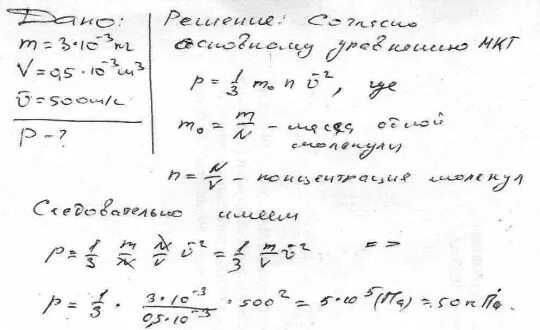 Дано:
m = 3·10⁻³ кг
V = 0,5·10⁻³ м³
v̄ = 500 м/с
p - ?
Решение: Согласно
основному уравнению МКТ
p = 1/3 m₀ n v̄², где
m₀ = m/N - масса одной
молекулы
n = N/V - концентрация молекул
Следовательно имеем
p = 1/3 m/N N/V v̄² = 1/3 m/V v̄² =>
p = 1/3 · 3·10⁻³/0,5·10⁻³ · 500² = 5·10⁵ (Па) = 50 кПа.